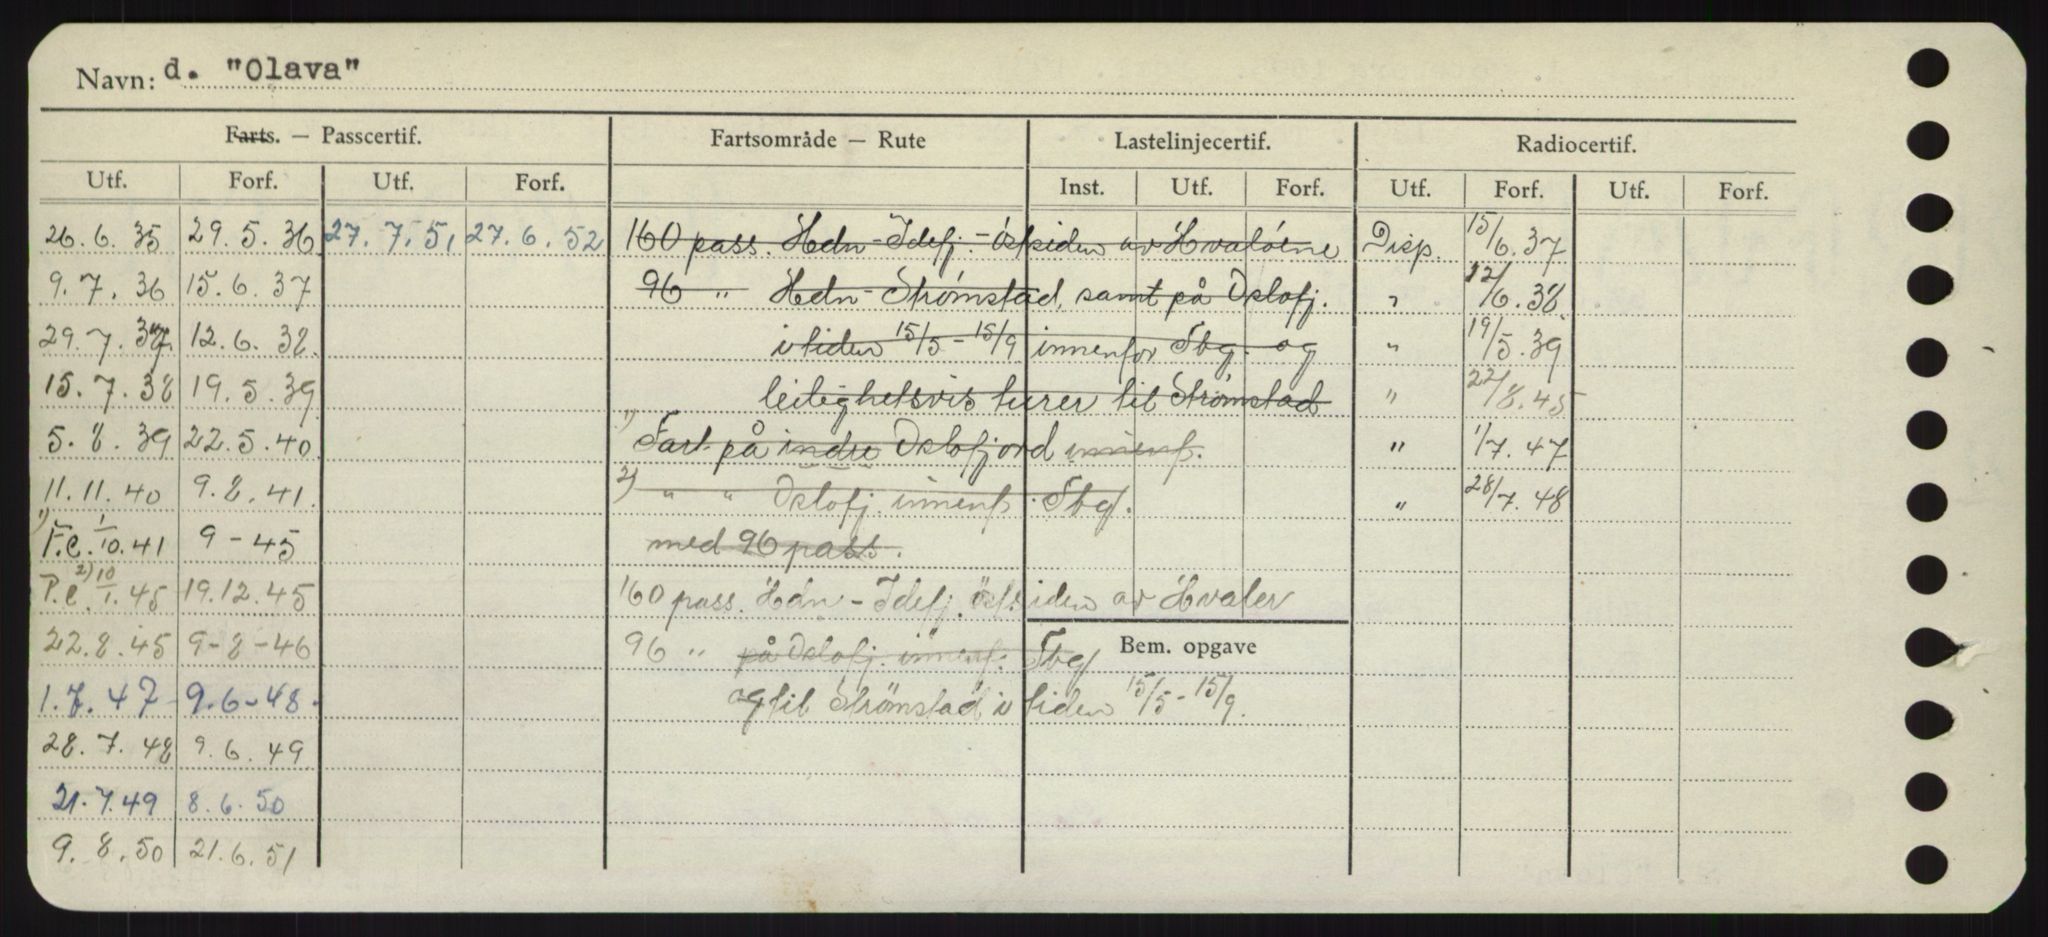 Navn: d. "Olava"
Farts. — Passcertif. Fartsområde — Rute Lastelinjecertif. Radiocertif.
Utf. Forf. Utf. Forf. Inst. Utf. Forf. Utf. Forf. Utf. Forf.
26.6.35 29.5.36 27.7.51 27.6.52 160 pass. Hdn-Idefj.-østsiden av Hvaløene Disp. 15/6.37
9.7.36 15.6.37 96 " Hdn-Strømstad, samt på Oslofj. " 12/6.38
29.7.37 12.6.38 i tiden 15/5-15/9 innenfor Tbg. og " 19/5.39
15.7.38 19.5.39 leilighetsvis turer til Strømstad " 22/8.45
5.8.39 22.5.40 1) Fart på indre Oslofjord innenf. " 1/7.47
11.11.40 9.8.41 2) " " Oslofj. innenf. Tbg. " 28/7.48
1) F.c. 1/10.41 9-45 med 96 pass.
P.c. 2) 10/1.45 19.12.45 160 pass. Hdn-Idefj. østsiden av Hvaler
22.8.45 9-8-46 96 " på Oslofj. innenf. Tbg Bem. opgave
1.7.47 9.6-48. og til Strømstad i tiden 15/5-15/9.
28.7.48 9.6.49
21.7.49 8.6.50
9.8.50 21.6.51